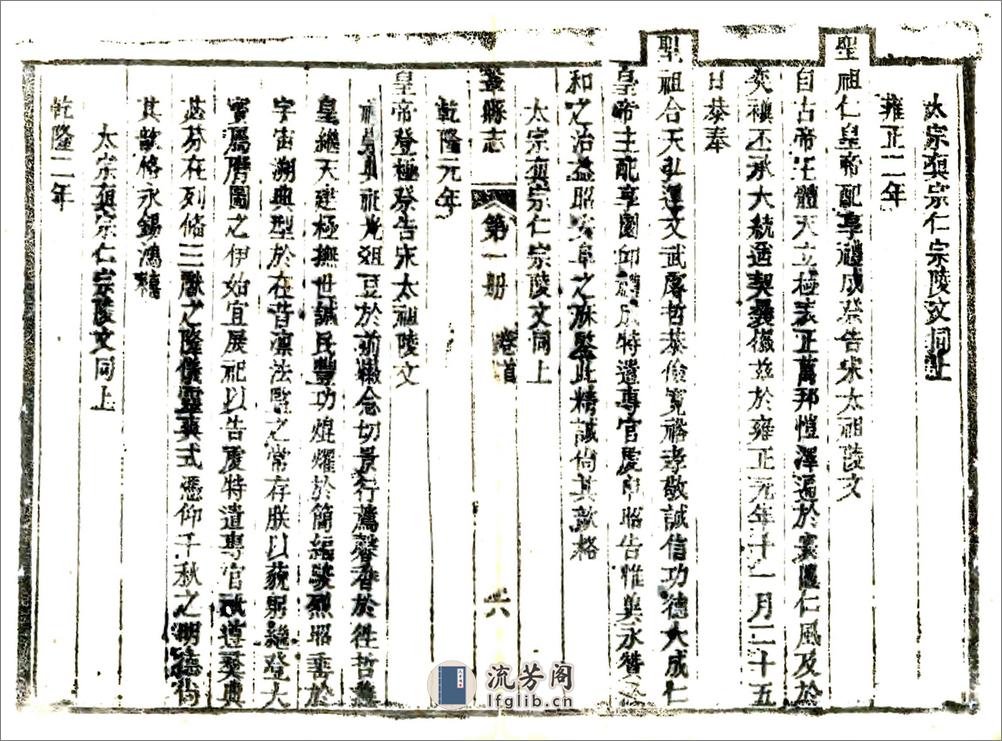 太宗真宗仁宗陵文同上
雍正二年
聖祖仁皇帝配享禮成祭告宋太祖陵文
自古帝王體天立極表正萬邦愷澤遍於寰區仁風及於
奕禩丕承大統遹契彝徽茲於雍正元年十一月二十五
日恭奉
聖祖合天弘運文武睿哲恭儉寬裕孝敬誠信功德大成仁
皇帝主配享圜卬禮成特遣專官虔申昭告惟冀永贊
和之治益昭安阜之庥鑒此精誠尚其歆格
太宗真宗仁宗陵文同上
鞏縣志
第一册
卷首
六
乾隆元年
皇帝登極祭告宋太祖陵文
典光俎豆於前徽念切景行薦馨香於往哲
皇繼天建極撫世誠民豐功焜耀於簡編駿烈昭垂於
宇宙溯典型於在昔凜法監之常存朕以藐躬纘登大
寶屬曆圖之伊始宜展祀以告虔特遣專官祇遵彝典
苾芬在列脩三獻之隆儀靈爽式憑仰千秋之明德尚
其歆格永錫鴻禧
太宗真宗仁宗陵文同上
乾隆二年
流芳阁
lfglib.cn